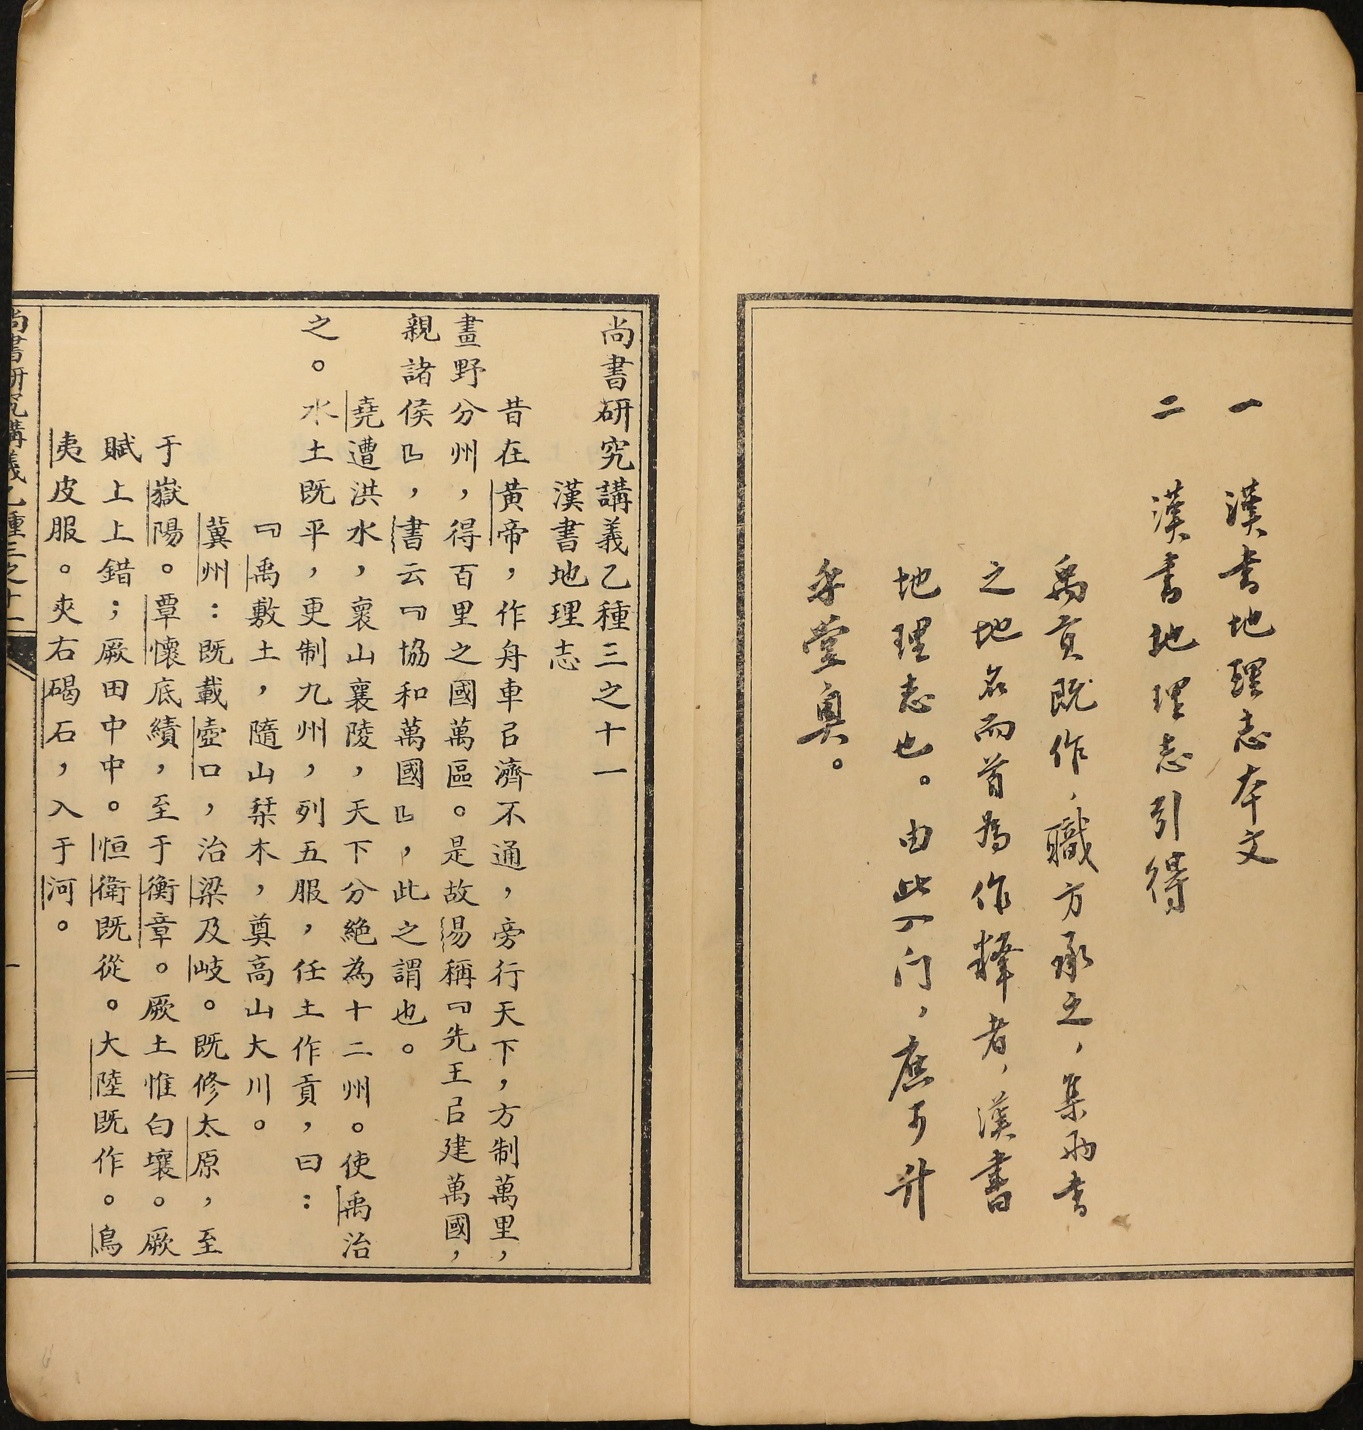 一　漢書地理志本文
二　漢書地理志引得
禹貢既作，職方承之，集兩書
之地名而首為作釋者，漢書
地理志也。由此入门，庶可升
堂奥。
尚書研究講義乙種三之十一
漢書地理志
昔在黃帝，作舟車㠯濟不通，旁行天下，方制萬里，
畫野分州，得百里之國萬區。是故易稱『先王㠯建萬國，
親諸侯』，書云『協和萬國』，此之謂也。
堯遭洪水，襄山襄陵，天下分絶為十二州。使禹治
之。水土既平，更制九州，列五服，任土作貢，曰：
『禹敷土，隨山栞木，奠高山大川。
冀州：既載壺口，治梁及岐。既修太原，至
于嶽陽。覃懷底績，至于衡章。厥土惟白壤。厥
賦上上錯；厥田中中。恒衛既從。大陸既作。鳥
夷皮服。夾右碣石，入于河。
尚書研究講義乙種三之十一
一